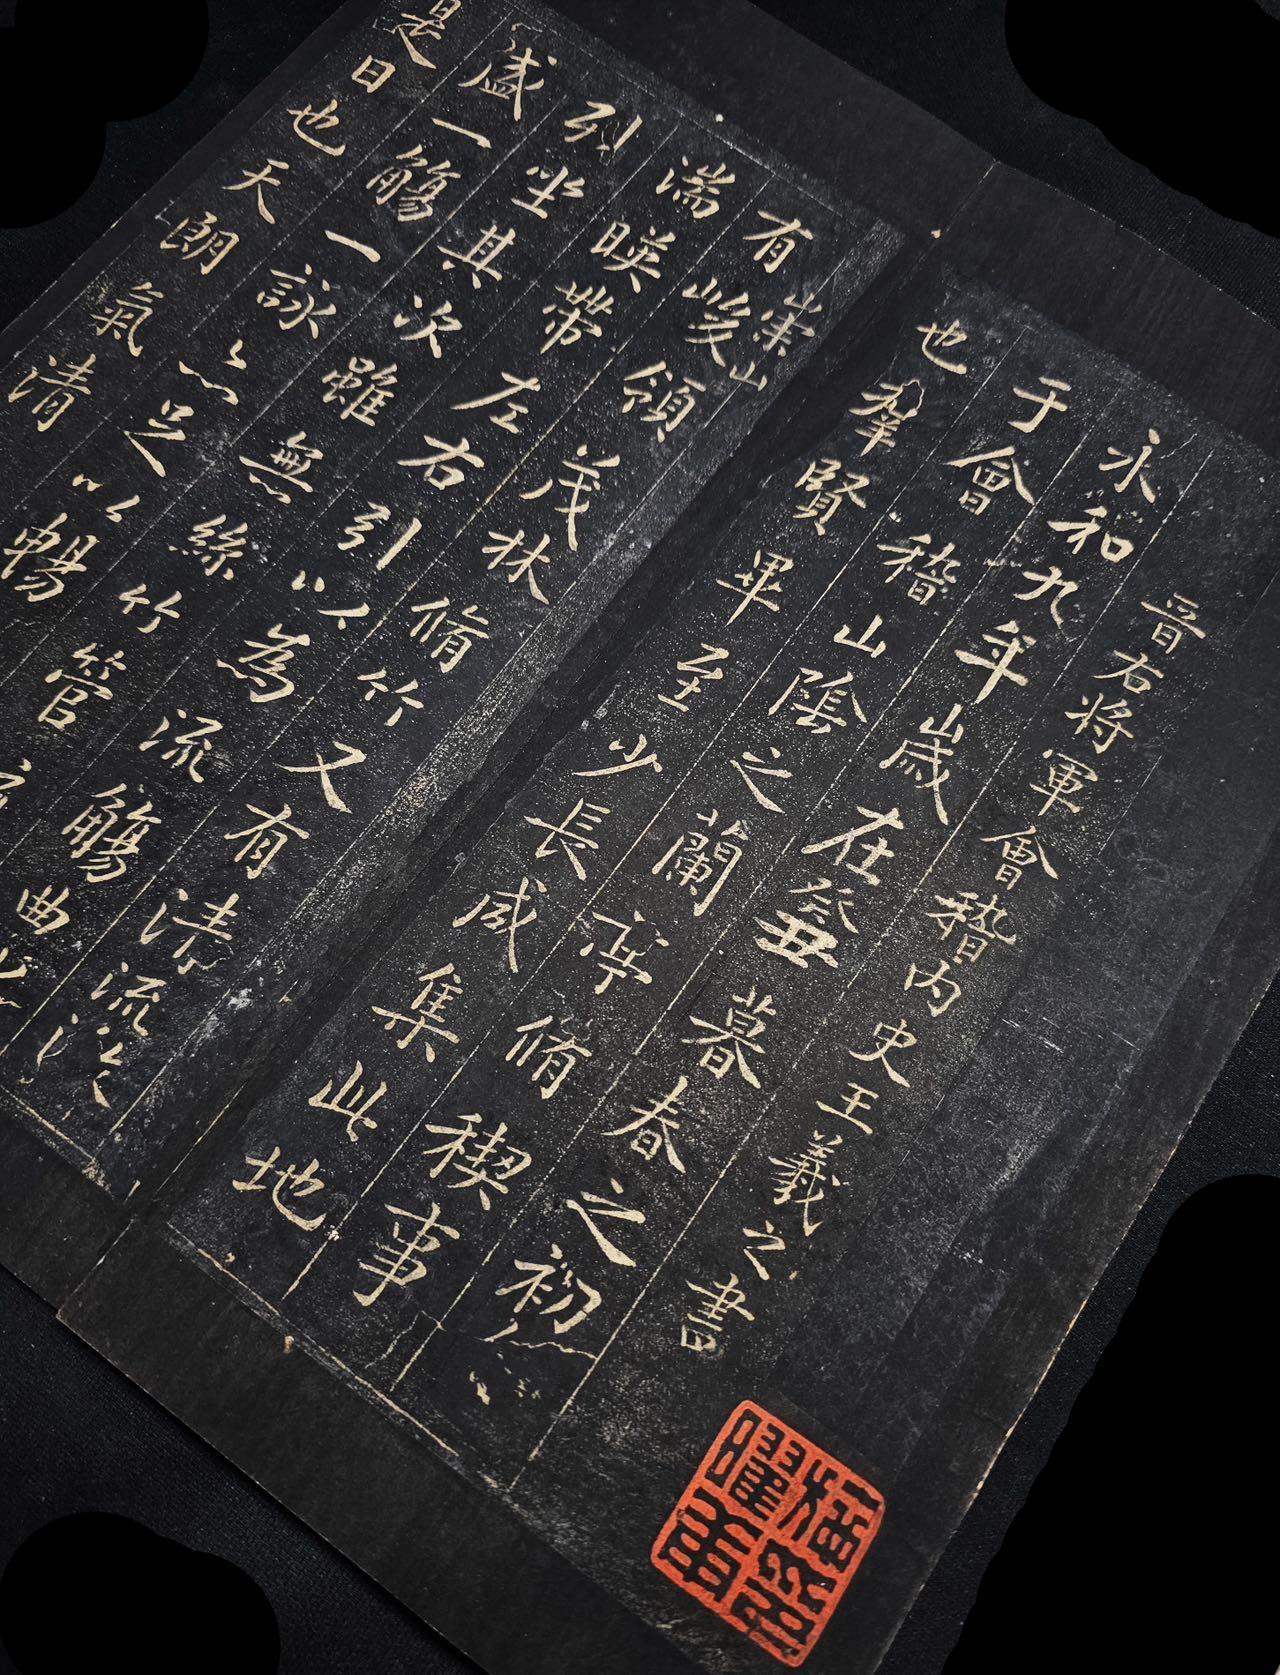 晉右將軍會稽内史王羲之書
永和九年歲在癸丑暮春之初
于會稽山陰之蘭亭脩稧事
也羣賢畢至少長咸集此地
有崇山峻領茂林脩竹又有清流激
湍暎帶左右引以為流觴曲
列坐其次雖無絲竹管
盛一觴一詠亦足以暢
是日也天朗氣清